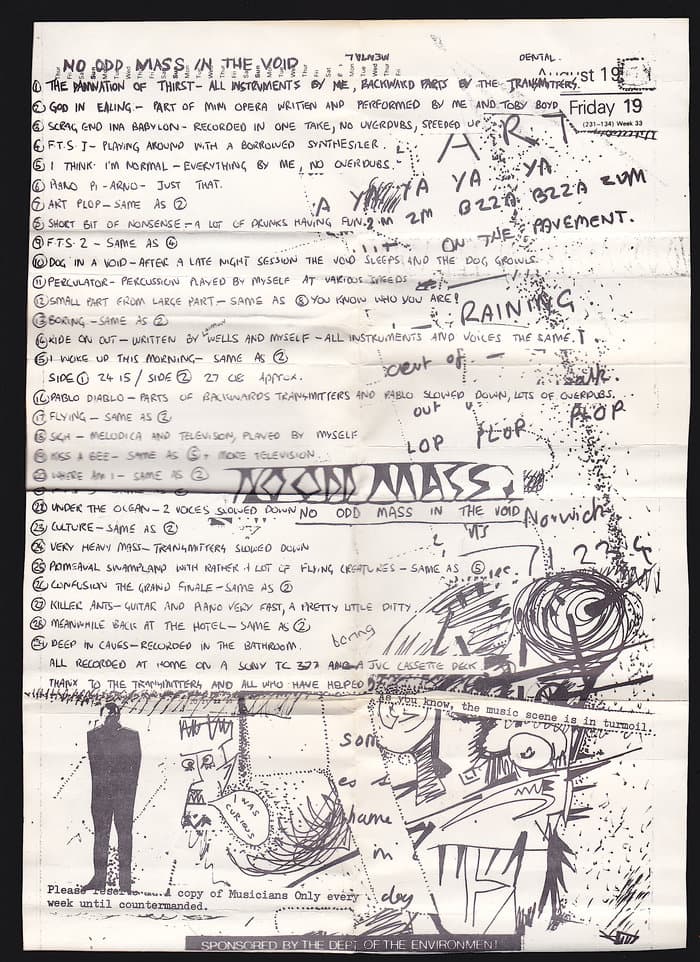 NO ODD MASS IN THE VOID
MENTAL
DENTAL
August 19
Friday 19
(231-134) Week 33
① THE DAMNATION OF THIRST - ALL INSTRUMENTS BY ME, BACKWARD PARTS BY THE TRANSMITTERS.
② GOD IN EALING - PART OF MINI OPERA WRITTEN AND PERFORMED BY ME AND TOBY BOYD
③ SCRAG END INA BABYLON - RECORDED IN ONE TAKE, NO OVERDUBS, SPEEDED UP
④ F.T.S. 1 - PLAYING AROUND WITH A BORROWED SYNTHESIZER.
⑤ I THINK I'M NORMAL - EVERYTHING BY ME, NO OVERDUBS.
⑥ PIANO PI-ARNO - JUST THAT.
⑦ ART PLOP - SAME AS ②
⑧ SHORT BIT OF NONSENSE - A LOT OF DRUNKS HAVING FUN.
⑨ F.T.S. 2 - SAME AS ④
⑩ DOG IN A VOID - AFTER A LATE NIGHT SESSION THE VOID SLEEPS AND THE DOG GROWLS.
⑪ PERCULATOR - PERCUSSION PLAYED BY MYSELF AT VARIOUS SPEEDS
⑫ SMALL PART FROM LARGE PART - SAME AS ⑧ YOU KNOW WHO YOU ARE!
⑬ BORING - SAME AS ②
⑭ RIDE ON OUT - WRITTEN BY WELLS AND MYSELF - ALL INSTRUMENTS AND VOICES THE SAME.
⑮ I WOKE UP THIS MORNING - SAME AS ②
SIDE ① 24 15 / SIDE ② 27 08 APPROX.
⑯ PABLO DIABLO - PARTS OF BACKWARDS TRANSMITTERS AND PABLO SLOWED DOWN, LOTS OF OVERDUBS.
⑰ FLYING - SAME AS ②
⑱ SIGH - MELODICA AND TELEVISON, PLAYED BY MYSELF
⑲ KISS A BEE - SAME AS ⑤ + MORE TELEVISION
WHERE AM I - SAME AS ②
NO ODD MASS
UNDER THE OCEAN - 2 VOICES SLOWED DOWN
NO ODD MASS IN THE VOID
CULTURE - SAME AS ②
VERY HEAVY MASS - TRANSMITTERS SLOWED DOWN
PRIMEAVAL SWAMPLAND WITH RATHER A LOT OF FLYING CREATURES - SAME AS ⑤
CONFUSION THE GRAND FINALE - SAME AS ②
㉗ KILLER ANTS - GUITAR AND PIANO VERY FAST, A PRETTY LITTLE DITTY.
㉘ MEANWHILE BACK AT THE HOTEL - SAME AS ②
㉙ DEEP IN CAVES - RECORDED IN THE BATHROOM.
ALL RECORDED AT HOME ON A SONY TC 377 AND A JVC CASSETTE DECK
THANX TO THE TRANSMITTERS AND ALL WHO HAVE HELPED
ART
A YA YA YA YA
2M BZZA BZZA ZUM
ON THE PAVEMENT.
RAINING
out of
out
PLOP
LOP PLOP
Norwich
22 4
boring
as you know, the music scene is in turmoil.
I WAS CURIOUS
som
es s
hame
m
day
Please reser a copy of Musicians Only every
week until countermanded.
SPONSORED BY THE DEPT OF THE ENVIRONMENT